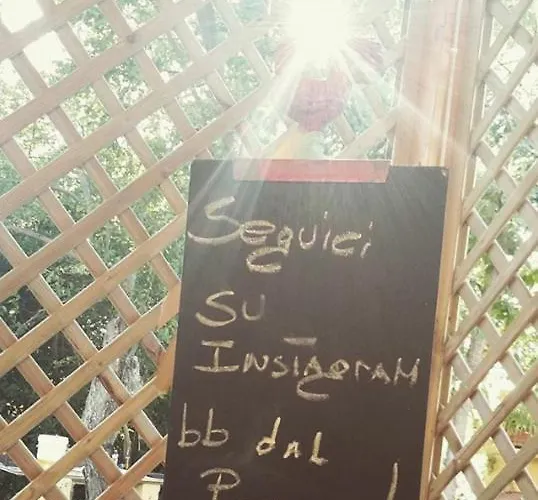 Seguici
SU
INSTAGRAM
bb dal
P